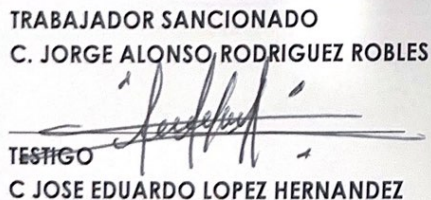 TRABAJADOR SANCIONADO
C. JORGE ALONSO RODRIGUEZ ROBLES
TESTIGO
C JOSE EDUARDO LOPEZ HERNANDEZ